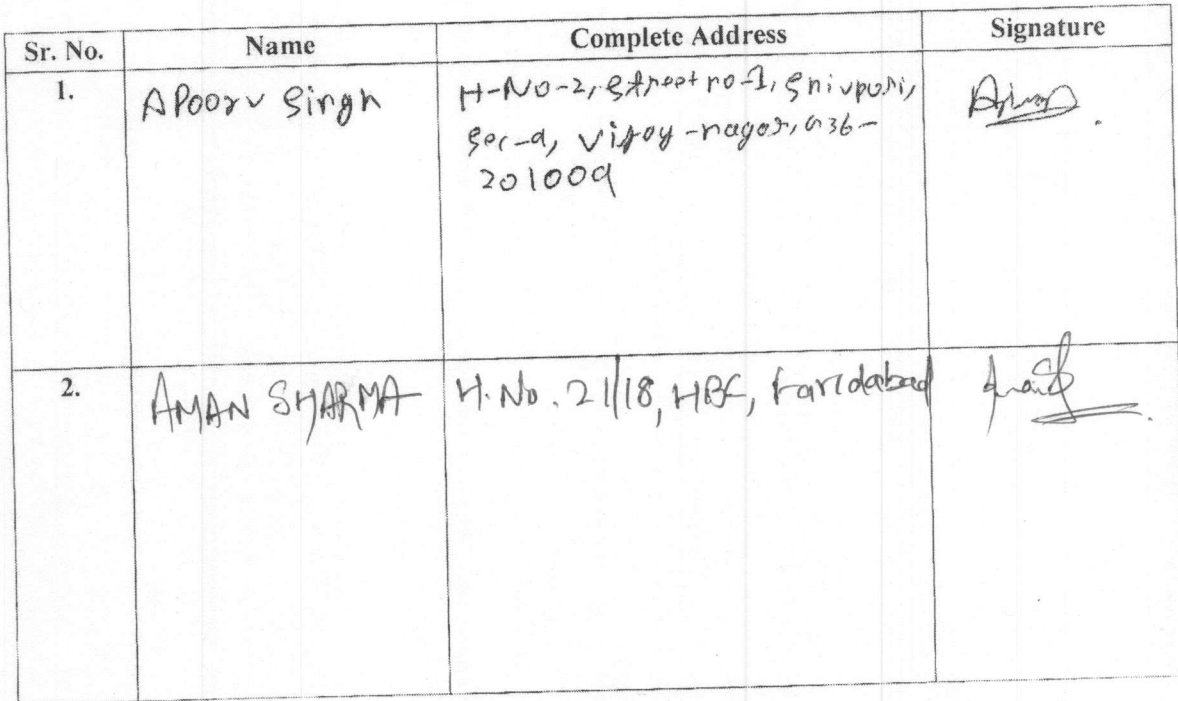 Sr. No. Name Complete Address Signature
1. APoorv Singh H-No-2, Street no-1, Shivpuri,
Sec-9, Vijay-nagar, G3b-
201009
2. AMAN SHARMA H.No. 21/18, HBC, Faridabad